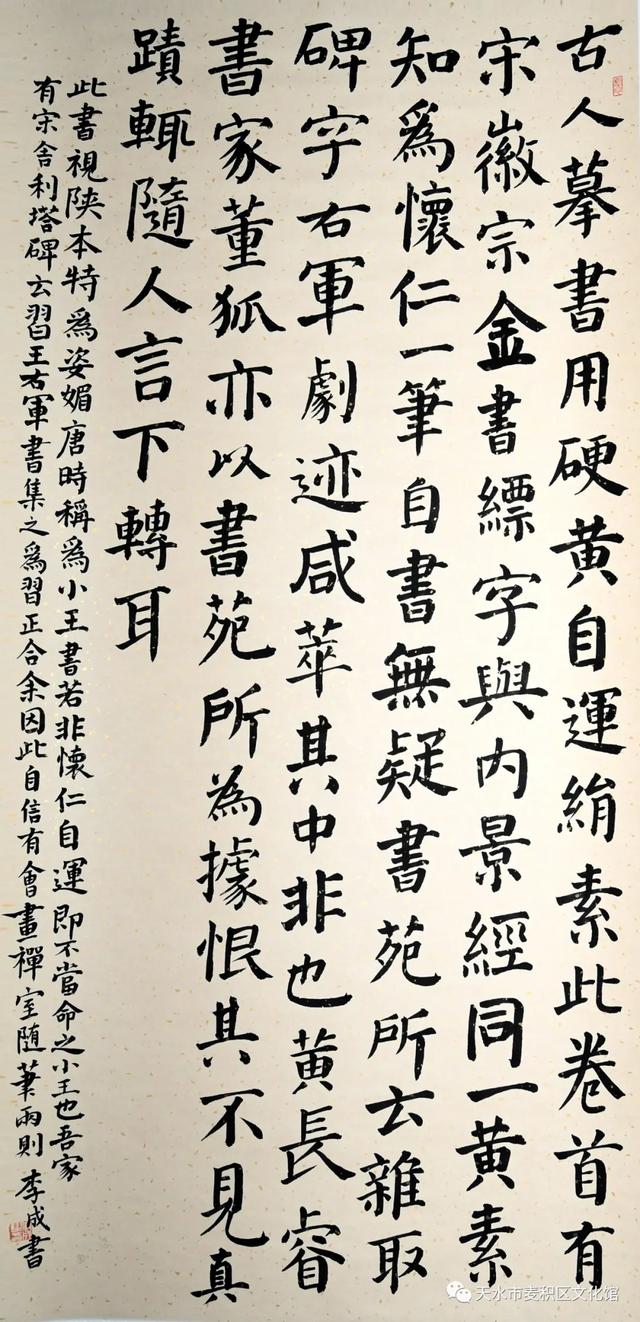 古人摹書用硬黄自運絹素此卷首有
宋徽宗金書縹字與内景經同一黄素
知爲懷仁一筆自書無疑書苑所云雜取
碑字右軍劇迹咸萃其中非也黄長睿
書家董狐亦以書苑所為據恨其不見真
蹟輒隨人言下轉耳
此書視陕本特爲姿媚唐時稱為小王書若非懷仁自運即不當命之小王也吾家
有宋舍利塔碑云習王右軍書集之爲習正合余因此自信有會畫禪室随筆兩則 李成書
天水市麦积区文化馆